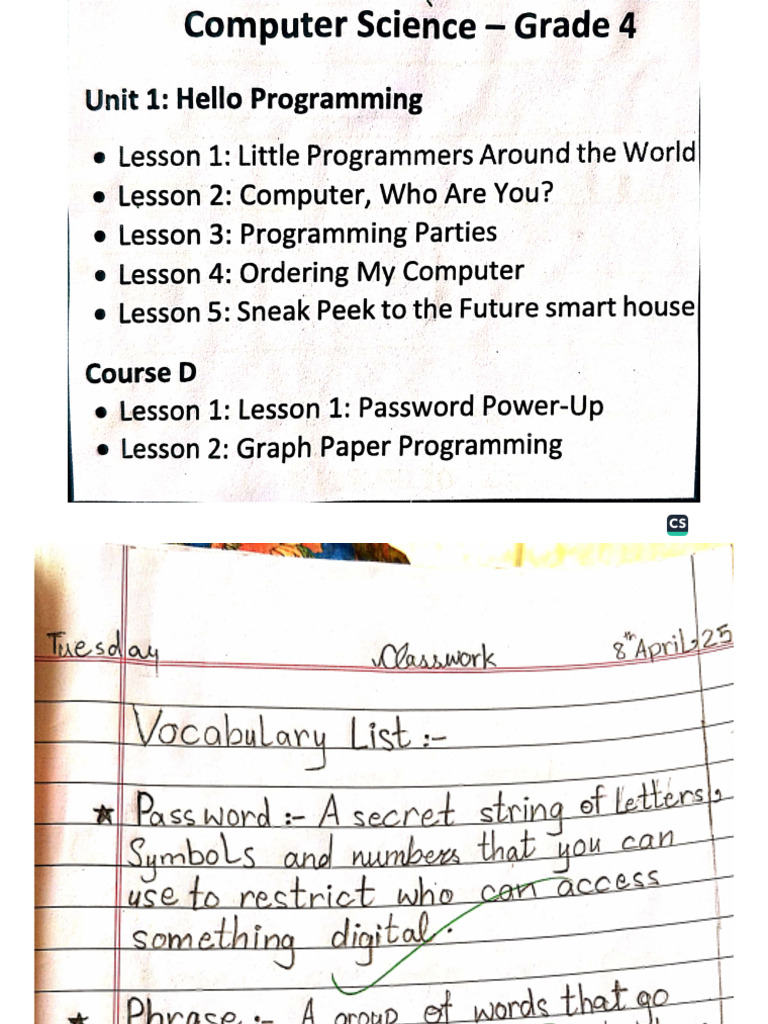 Computer Science – Grade 4
Unit 1: Hello Programming
• Lesson 1: Little Programmers Around the World
• Lesson 2: Computer, Who Are You?
• Lesson 3: Programming Parties
• Lesson 4: Ordering My Computer
• Lesson 5: Sneak Peek to the Future smart house
Course D
• Lesson 1: Lesson 1: Password Power-Up
• Lesson 2: Graph Paper Programming
CS
Tuesday Classwork 8th April, 25
Vocabulary List :-
★ Password :- A secret string of letters,
Symbols and numbers that you can
use to restrict who can access
something digital.
★ Phrase :- A group of words that go